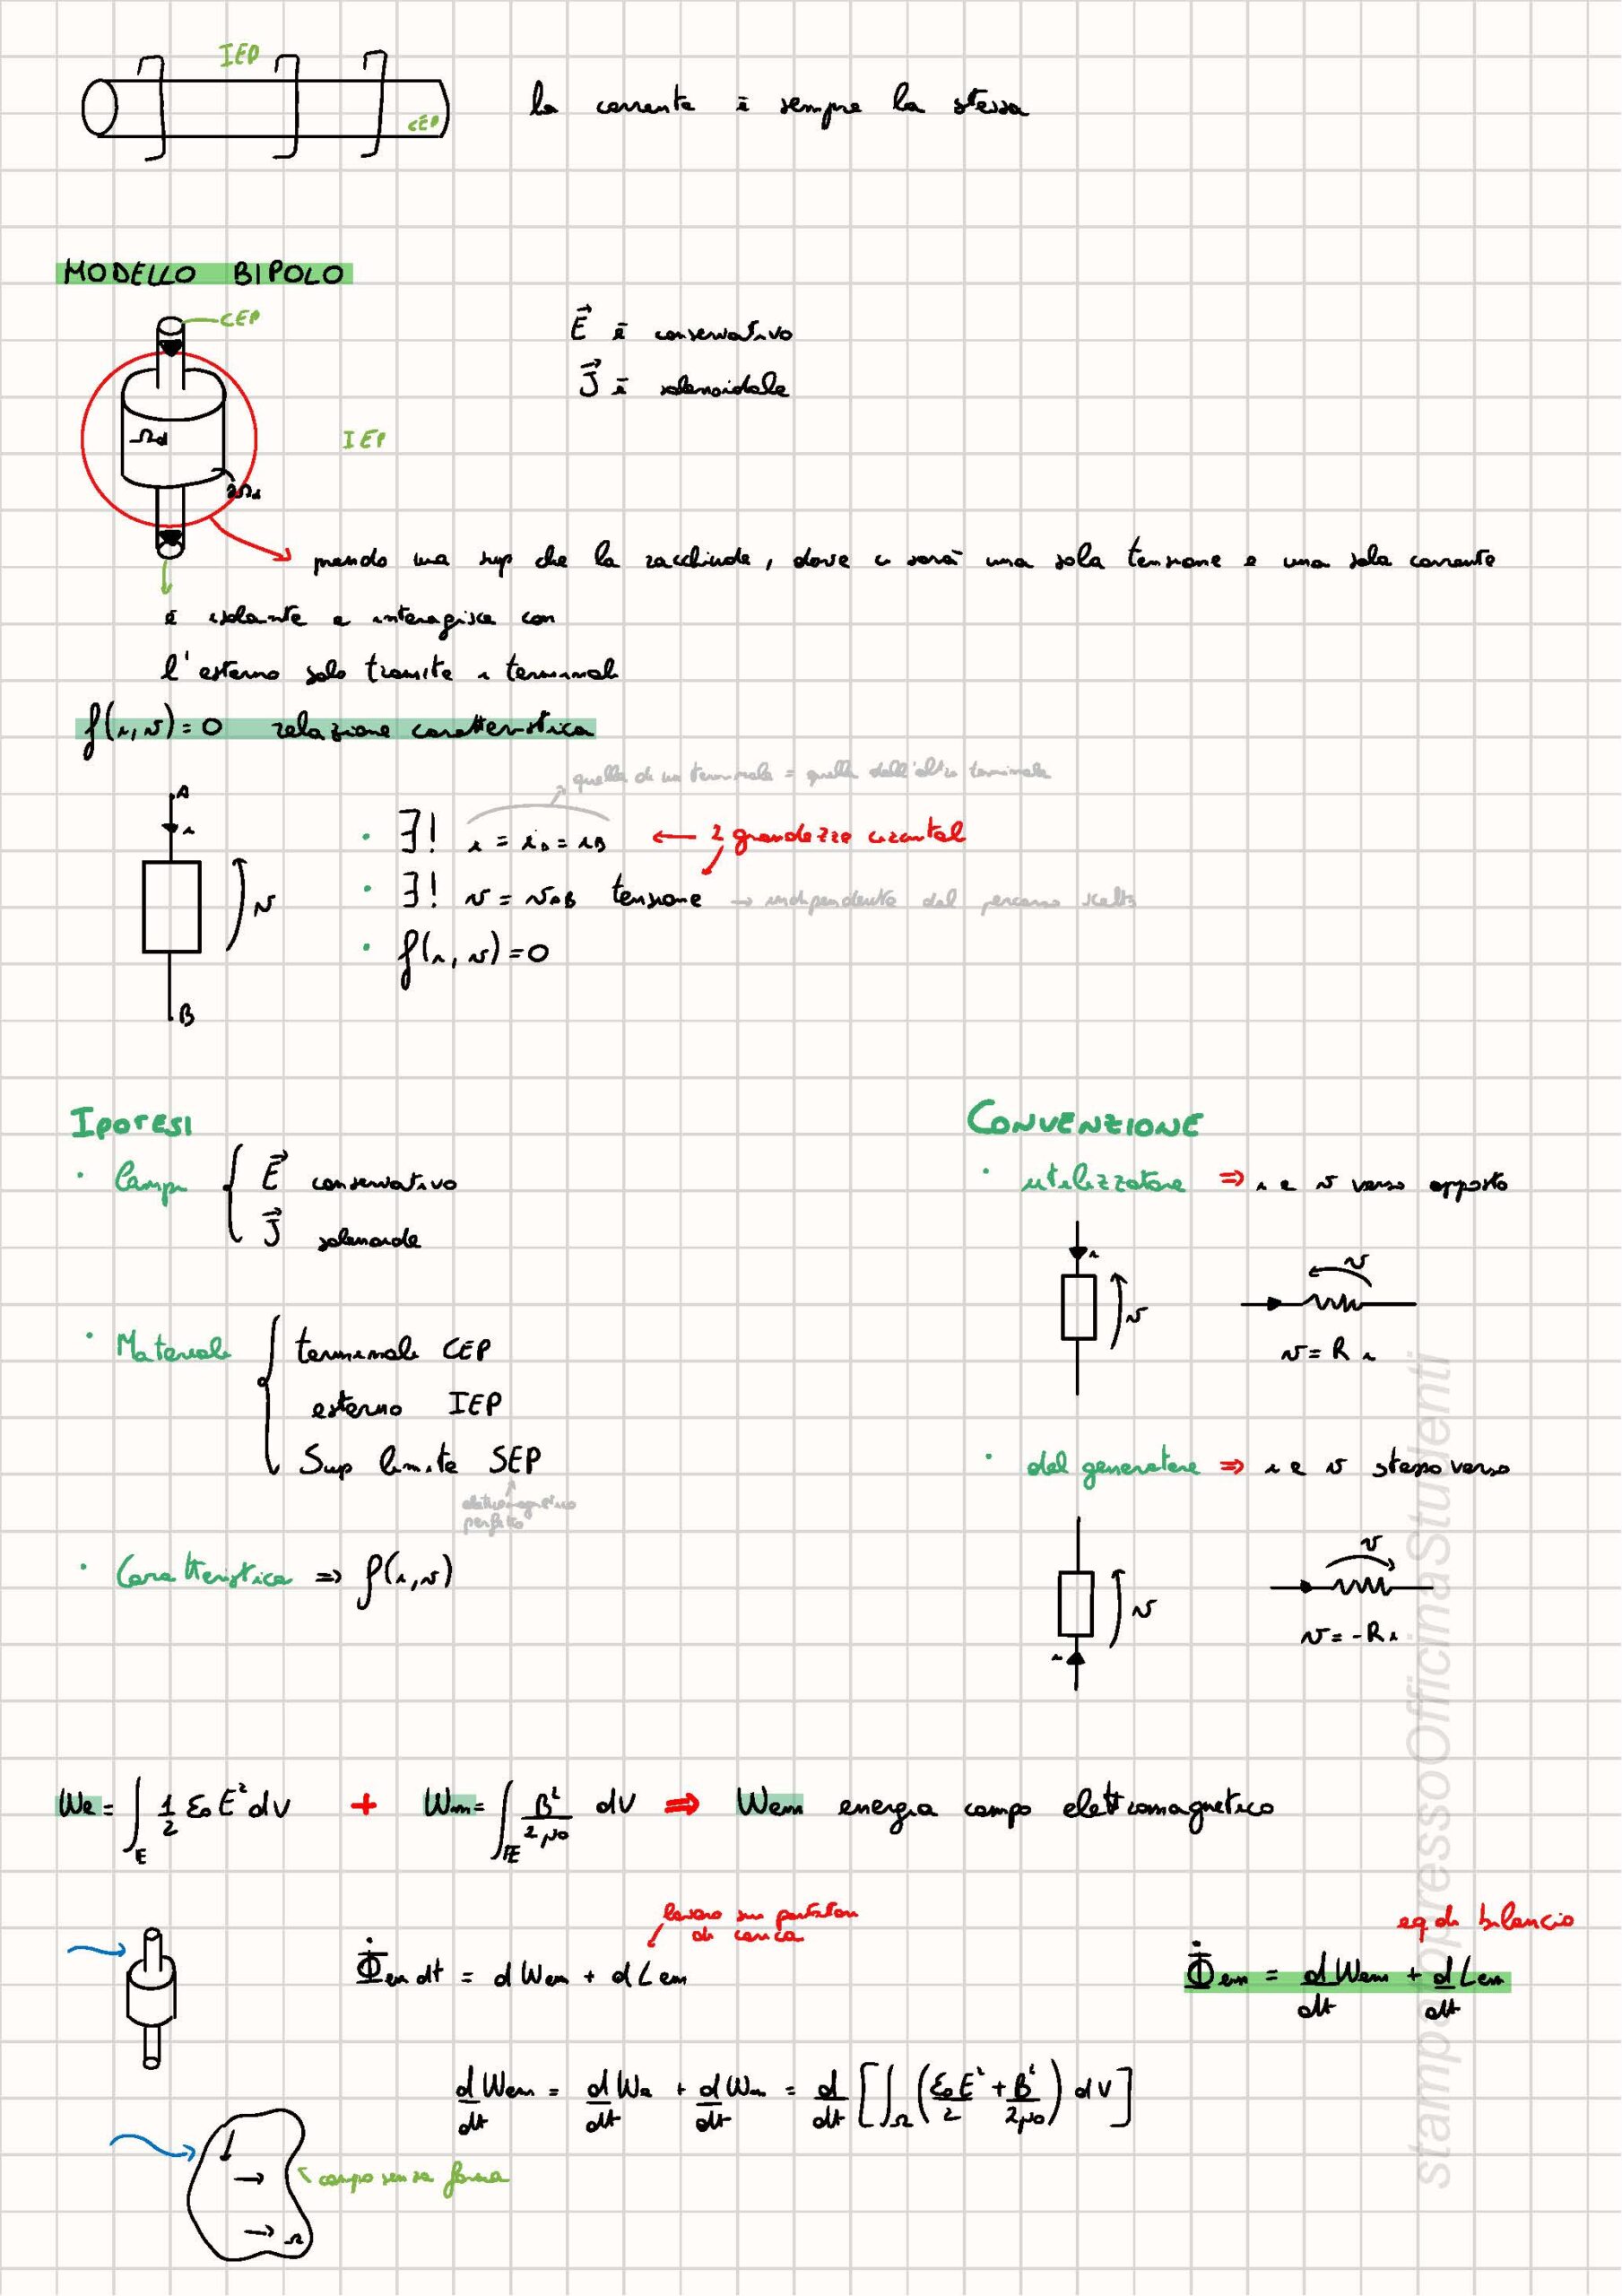 IEP
CEP
la corrente è sempre la stessa
MODELLO BIPOLO
CEP
E⃗ è conservativo
J⃗ è solenoidale
Ωd
IEP
∂Ωd
prendo una sup che la racchiude, dove ci sarà una sola tensione e una sola corrente
è isolante e interagisce con
l'esterno solo tramite i terminali
f(i,v)=0 relazione caratteristica
quella di un terminale = quella dell'altro terminale
A
i
v
B
• ∃! i = iA = iB ← 2 grandezze circuitali
• ∃! v = vAB tensione → indipendente dal percorso scelto
• f(i,v)=0
IPOTESI
• Campi { E⃗ conservativo
J⃗ solenoide
• Materiale { terminale CEP
esterno IEP
Sup limite SEP
elettromagnetico
perfetto
• Caratteristica => f(i,v)
CONVENZIONE
• utilizzatore => i e v verso opposto
i
v
v
v = R i
• del generatore => i e v stesso verso
v
i
v
v = -R i
We = ∫E 1/2 ε0 E² dV + Wm = ∫E B²/2μ0 dV => Wem energia campo elettromagnetico
lavoro sui portatori
di carica
Φ̇em dt = dWem + dLem
eq di bilancio
Φ̇em = dWem/dt + dLem/dt
dWem/dt = dWe/dt + dWm/dt = d/dt [∫Ω (ε0E²/2 + B²/2μ0) dV]
campo senza forma
Ω
stampa presso Officina Studenti